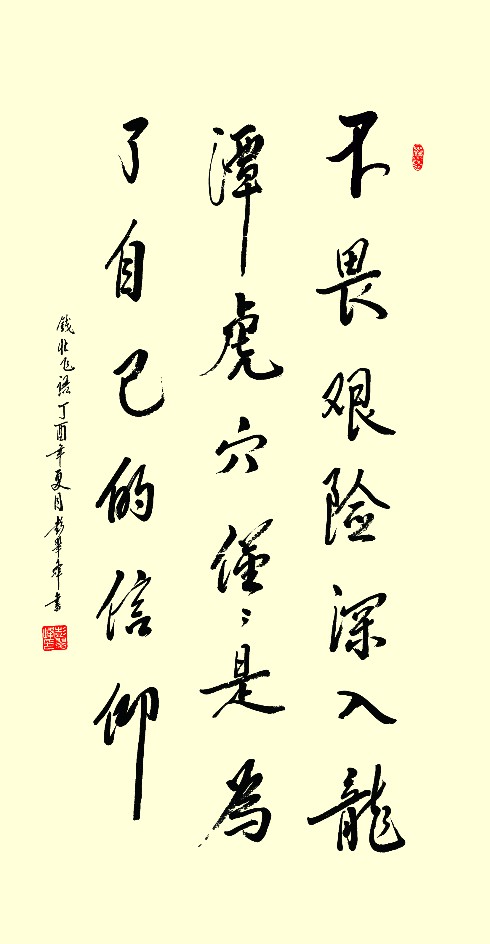 不畏艰险深入龍
潭虎穴僅〻是為
了自己的信仰
钱壮飞语丁酉年夏月彭華峰書